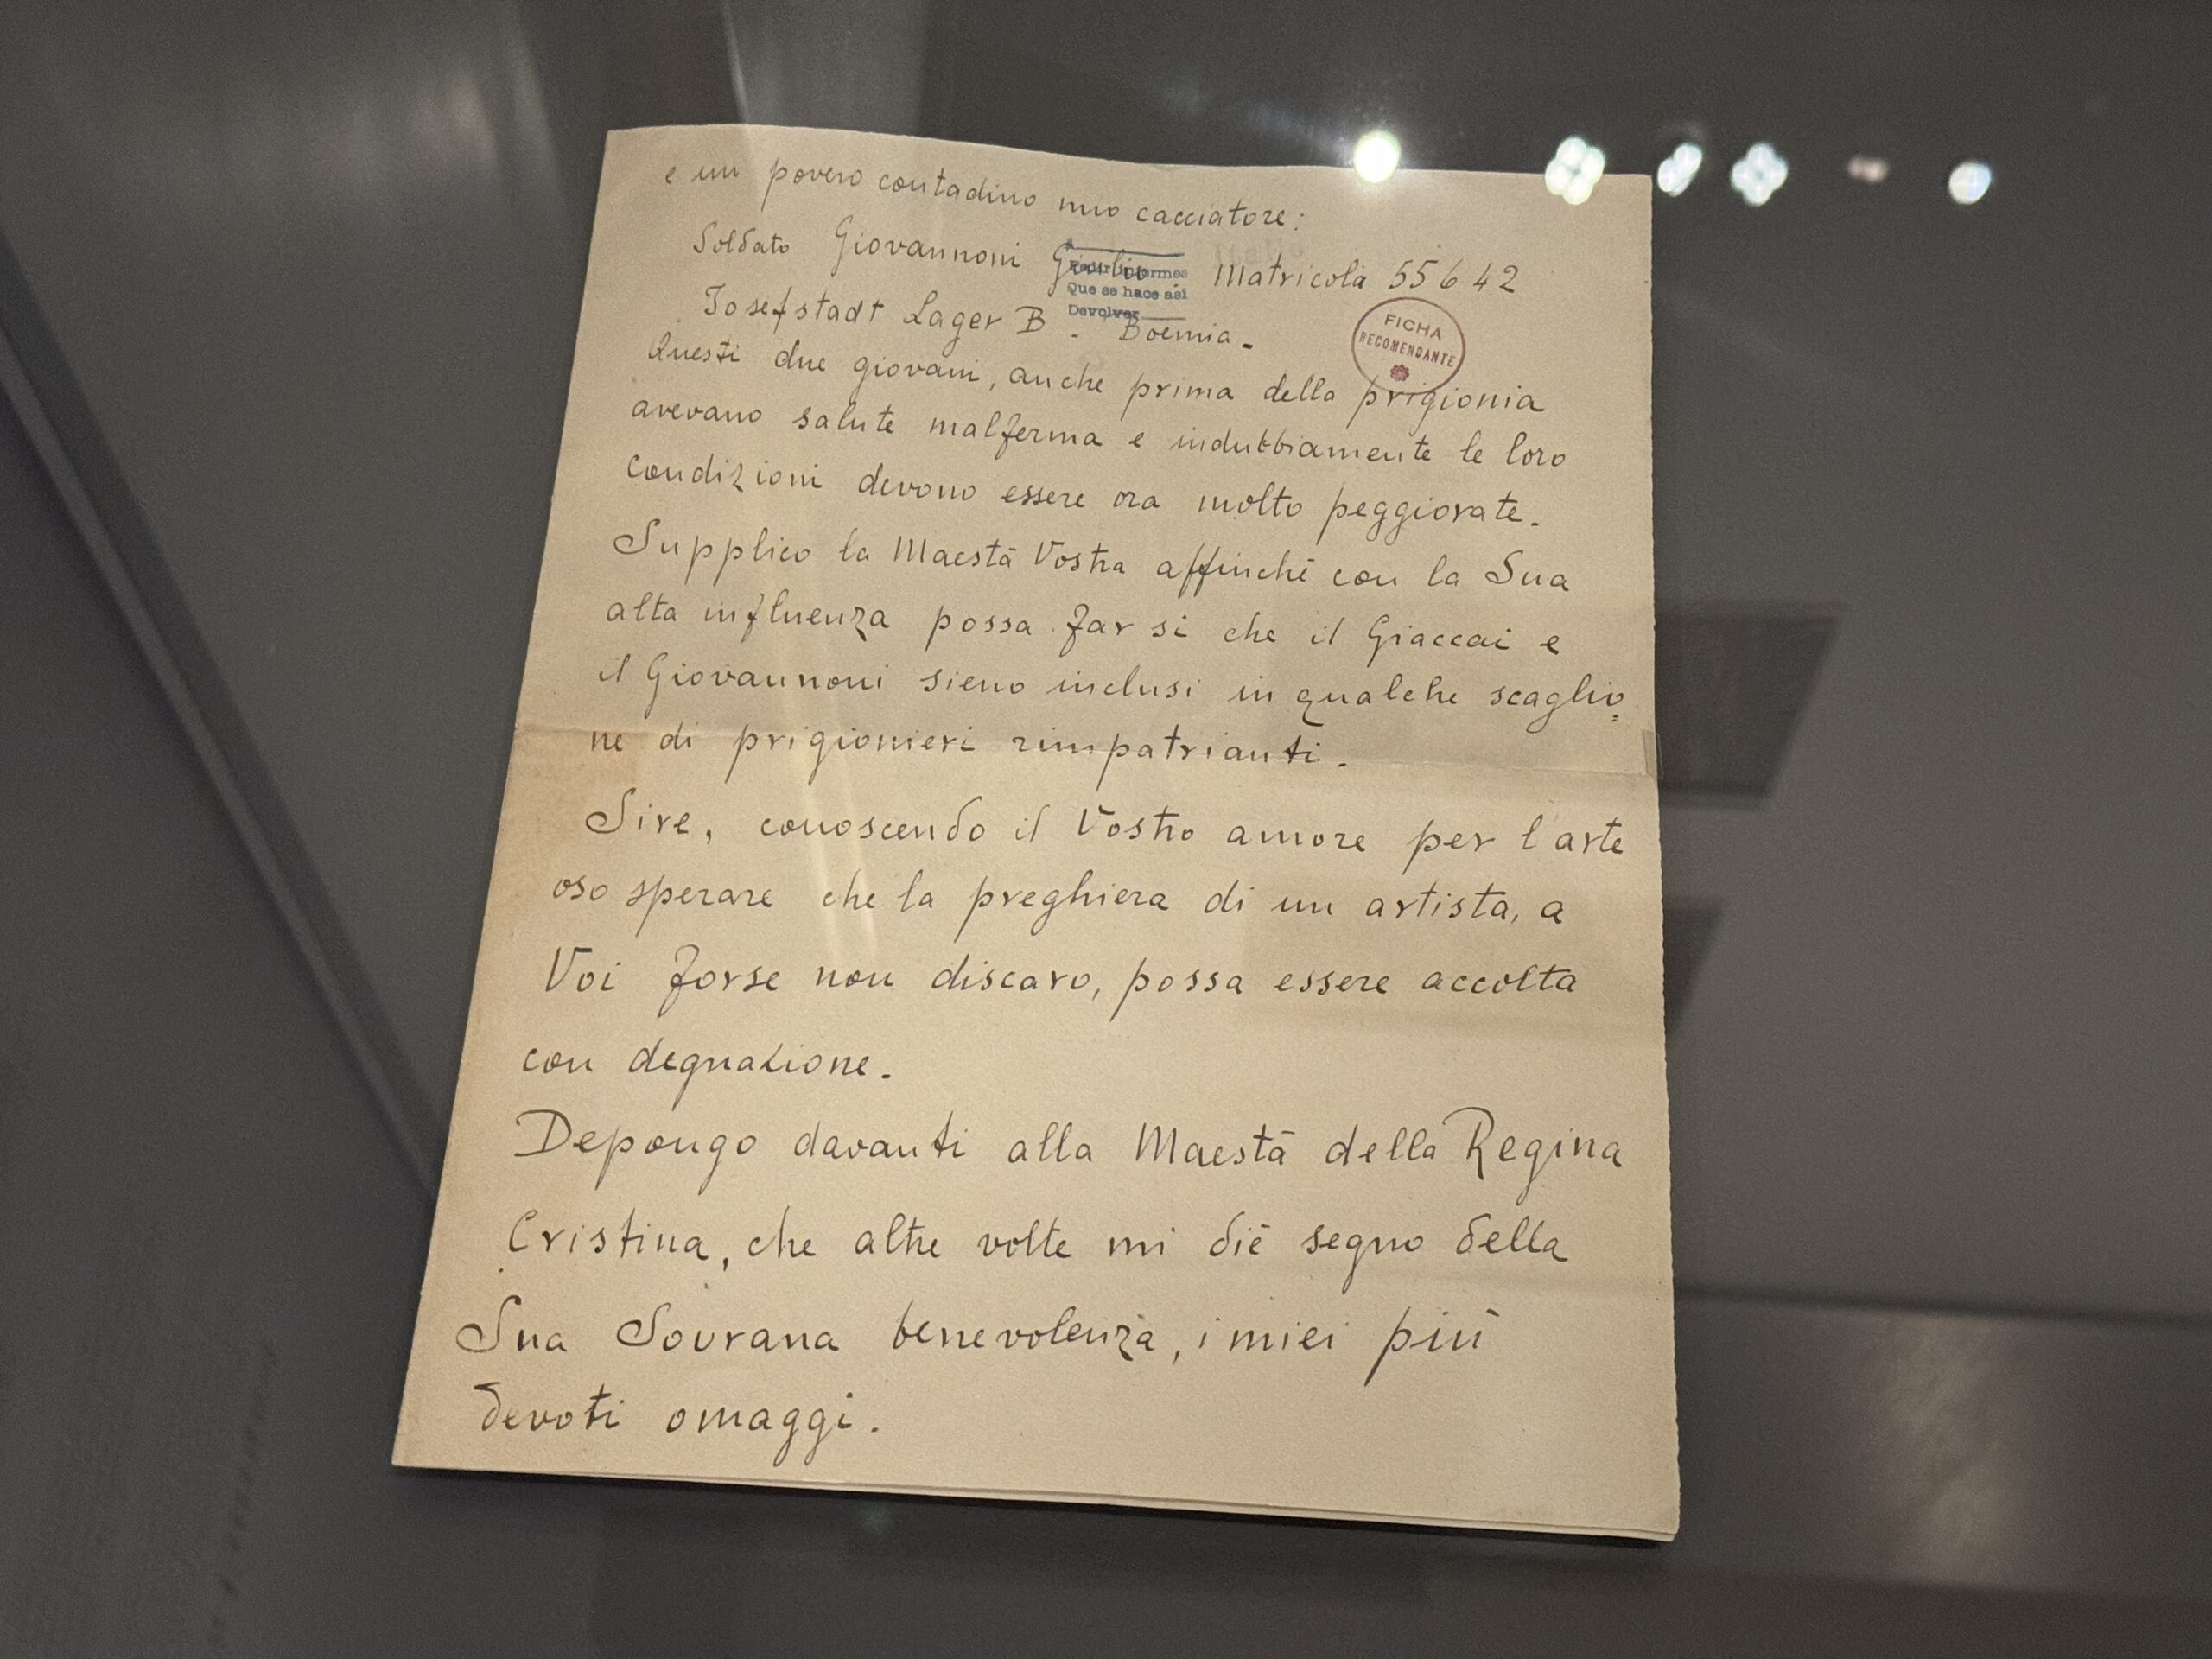 e un povero contadino mio cacciatore:
Soldato Giovannoni Giulio Matricola 55642
Pedir informes
Que se hace así
Devolver
Josefstadt Lager B - Boemia -
FICHA
RECOMENDANTE
Questi due giovani, anche prima della prigionia
avevano salute malferma e indubbiamente le loro
condizioni devono essere ora molto peggiorate.
Supplico la Maestà Vostra affinchè con la Sua
alta influenza possa far si che il Giaccai e
il Giovannoni sieno inclusi in qualche scaglio=
ne di prigionieri rimpatrianti.
Sire, conoscendo il Vostro amore per l'arte
oso sperare che la preghiera di un artista, a
Voi forse non discaro, possa essere accolta
con degnazione.
Depongo davanti alla Maestà della Regina
Cristina, che altre volte mi diè segno della
Sua Sovrana benevolenza, i miei più
devoti omaggi.